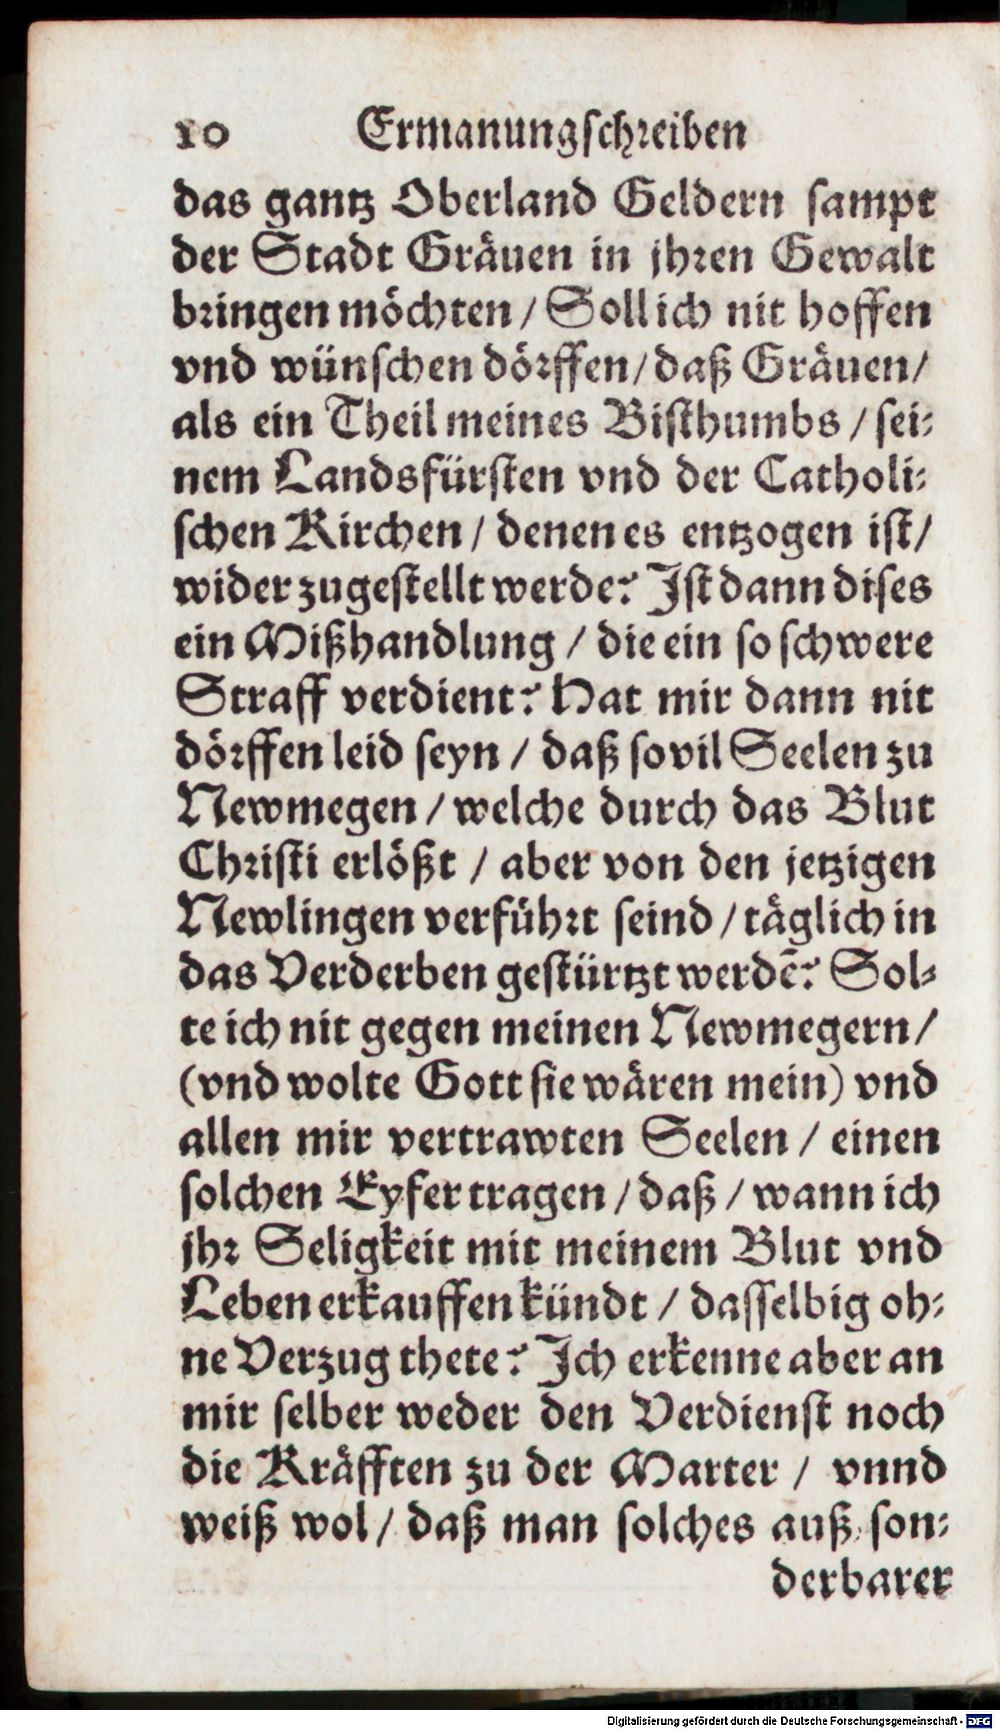 10 Ermanungschreiben
das gantz Oberland Geldern sampt
der Stadt Gräuen in jhren Gewalt
bringen möchten / Soll ich nit hoffen
vnd wünschen dörffen / daß Gräuen /
als ein Theil meines Bisthumbs / sei-
nem Landsfürsten vnd der Catholi-
schen Kirchen / denen es entzogen ist /
wider zugestellt werde? Ist dann dises
ein Mißhandlung / die ein so schwere
Straff verdient? Hat mir dann nit
dörffen leid seyn / daß so vil Seelen zu
Newmegen / welche durch das Blut
Christi erlößt / aber von den jetzigen
Newlingen verführt seind / täglich in
das Verderben gestürtzt werdē? Sol-
te ich nit gegen meinen Newmegern /
(vnd wolte Gott sie wären mein) vnd
allen mir vertrawten Seelen / einen
solchen Eyfer tragen / daß / wann ich
jhr Seligkeit mit meinem Blut vnd
Leben erkauffen kündt / dasselbig oh-
ne Verzug thete? Ich erkenne aber an
mir selber weder den Verdienst noch
die Kräfften zu der Marter / vnnd
weiß wol / daß man solches auß son-
derbarer
Digitalisierung gefördert durch die Deutsche Forschungsgemeinschaft - DFG